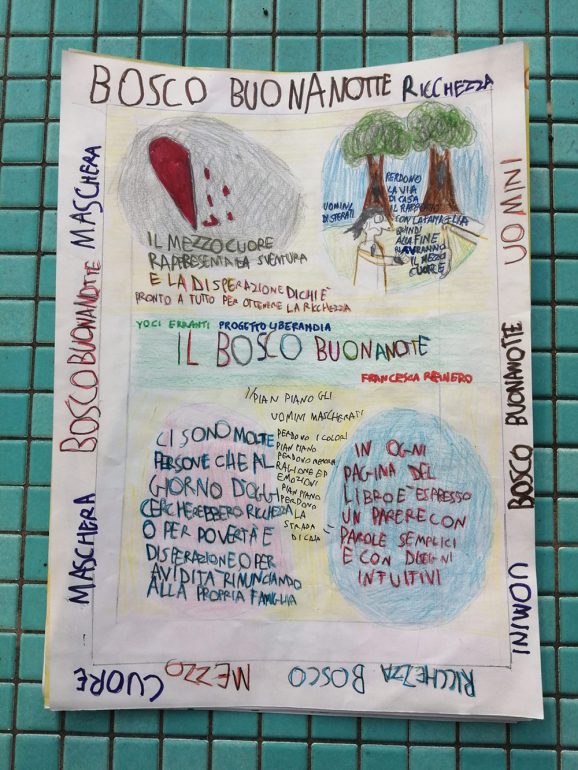 BOSCO BUONANOTTE RICCHEZZA
MASCHERA
BOSCO BUONANOTTE
MASCHERA
UOMINI
BOSCO BUONANOTTE
UOMINI
CUORE MEZZO RICCHEZZA BOSCO
IL MEZZO CUORE
RAPPRESENTA LA SVENTURA
E LA DISPERAZIONE DI CHI È
PRONTO A TUTTO PER OTTENERE LA RICCHEZZA
UOMINI
DISPERATI
PERDONO
LA VIA
DI CASA
IL RAPPORTO
CON LA FAMIGLIA
QUINDI
ALLA FINE
AVRANNO
IL MEZZO
CUORE
VOCI ERRANTI PROGETTO LIBERANDIA
IL BOSCO BUONANOTTE
FRANCESCA REINERO
CI SONO MOLTE
PERSONE CHE AL
GIORNO D'OGGI
CERCHEREBBERO RICCHEZZA
O PER POVERTÀ E
DISPERAZIONE O PER
AVIDITÀ RINUNCIANDO
ALLA PROPRIA FAMIGLIA
PIAN PIANO GLI
UOMINI MASCHERATI
PERDONO I COLORI
PIAN PIANO
PERDONO MEMORIA
RAGIONE ED
EMOZIONI
PIAN PIANO
PERDONO
LA
STRADA
DI CASA
IN OGNI
PAGINA DEL
LIBRO È ESPRESSO
UN PARERE CON
PAROLE SEMPLICI
E CON DISEGNI
INTUITIVI